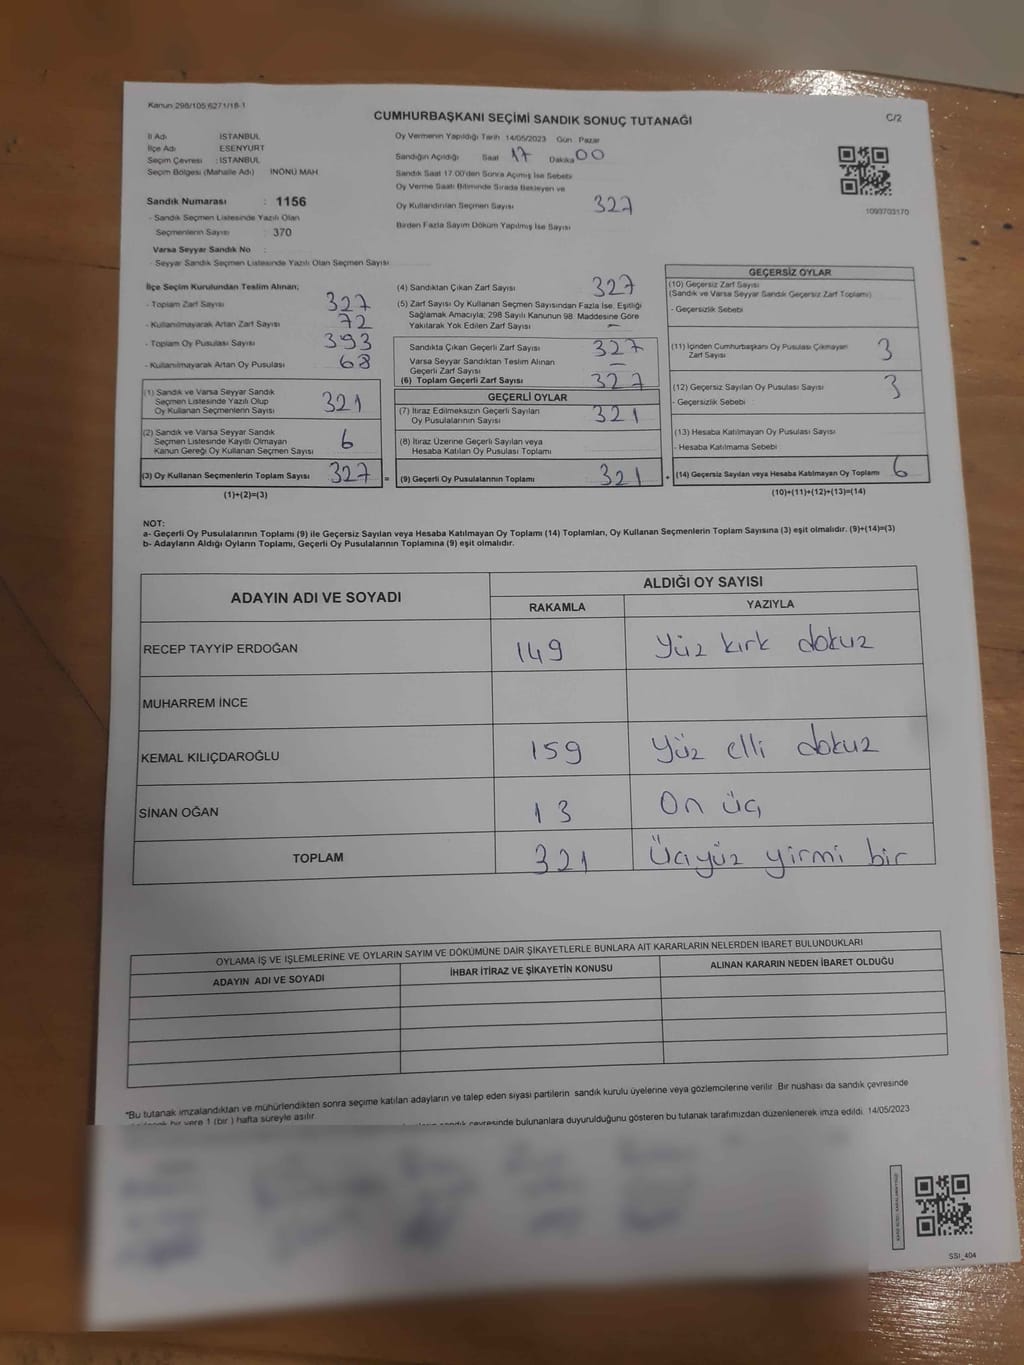 Kanun 298/105 6271/18-1
CUMHURBAŞKANI SEÇİMİ SANDIK SONUÇ TUTANAĞI
C/2
İl Adı : İSTANBUL
İlçe Adı : ESENYURT
Seçim Çevresi : İSTANBUL
Seçim Bölgesi (Mahalle Adı) İNÖNÜ MAH.
Sandık Numarası : 1156
- Sandık Seçmen Listesinde Yazılı Olan
Seçmenlerin Sayısı : 370
Varsa Seyyar Sandık No :
- Seyyar Sandık Seçmen Listesinde Yazılı Olan Seçmen Sayısı
Oy Vermenin Yapıldığı Tarih 14/05/2023 Gün Pazar
Sandığın Açıldığı Saat 17 Dakika 00
Sandık Saat 17.00'den Sonra Açılmış İse Sebebi
Oy Verme Saati Bitiminde Sırada Bekleyen ve
Oy Kullandırılan Seçmen Sayısı 327
Birden Fazla Sayım Döküm Yapılmış İse Sayısı
1093703170
İlçe Seçim Kurulundan Teslim Alınan;
- Toplam Zarf Sayısı 327
- Kullanılmayarak Artan Zarf Sayısı 72
- Toplam Oy Pusulası Sayısı 393
- Kullanılmayarak Artan Oy Pusulası 68
(1) Sandık ve Varsa Seyyar Sandık
Seçmen Listesinde Yazılı Olup
Oy Kullanan Seçmenlerin Sayısı 321
(2) Sandık ve Varsa Seyyar Sandık
Seçmen Listesinde Kayıtlı Olmayan
Kanun Gereği Oy Kullanan Seçmen Sayısı 6
(3) Oy Kullanan Seçmenlerin Toplam Sayısı 327 =
(1)+(2)=(3)
(4) Sandıktan Çıkan Zarf Sayısı 327
(5) Zarf Sayısı Oy Kullanan Seçmen Sayısından Fazla İse, Eşitliği
Sağlamak Amacıyla; 298 Sayılı Kanunun 98. Maddesine Göre
Yakılarak Yok Edilen Zarf Sayısı –
Sandıkta Çıkan Geçerli Zarf Sayısı 327
Varsa Seyyar Sandıktan Teslim Alınan –
Geçerli Zarf Sayısı
(6) Toplam Geçerli Zarf Sayısı 327
GEÇERLİ OYLAR
(7) İtiraz Edilmeksizin Geçerli Sayılan
Oy Pusulalarının Sayısı 321
(8) İtiraz Üzerine Geçerli Sayılan veya
Hesaba Katılan Oy Pusulası Toplamı
(9) Geçerli Oy Pusulalarının Toplamı 321 +
GEÇERSİZ OYLAR
(10) Geçersiz Zarf Sayısı
(Sandık ve Varsa Seyyar Sandık Geçersiz Zarf Toplamı)
- Geçersizlik Sebebi
(11) İçinden Cumhurbaşkanı Oy Pusulası Çıkmayan
Zarf Sayısı 3
(12) Geçersiz Sayılan Oy Pusulası Sayısı 3
- Geçersizlik Sebebi
(13) Hesaba Katılmayan Oy Pusulası Sayısı
- Hesaba Katılmama Sebebi
(14) Geçersiz Sayılan veya Hesaba Katılmayan Oy Toplamı 6
(10)+(11)+(12)+(13)=(14)
NOT:
a- Geçerli Oy Pusulalarının Toplamı (9) ile Geçersiz Sayılan veya Hesaba Katılmayan Oy Toplamı (14) Toplamları, Oy Kullanan Seçmenlerin Toplam Sayısına (3) eşit olmalıdır. (9)+(14)=(3)
b- Adayların Aldığı Oyların Toplamı, Geçerli Oy Pusulalarının Toplamına (9) eşit olmalıdır.
ADAYIN ADI VE SOYADI
ALDIĞI OY SAYISI
RAKAMLA YAZIYLA
RECEP TAYYİP ERDOĞAN 149 Yüz kırk dokuz
MUHARREM İNCE
KEMAL KILIÇDAROĞLU 159 Yüz elli dokuz
SİNAN OĞAN 13 On üç
TOPLAM 321 Üçyüz yirmi bir
OYLAMA İŞ VE İŞLEMLERİNE VE OYLARIN SAYIM VE DÖKÜMÜNE DAİR ŞİKAYETLERLE BUNLARA AİT KARARLARIN NELERDEN İBARET BULUNDUKLARI
ADAYIN ADI VE SOYADI İHBAR İTİRAZ VE ŞİKAYETİN KONUSU ALINAN KARARIN NEDEN İBARET OLDUĞU
*Bu tutanak imzalandıktan ve mühürlendikten sonra seçime katılan adayların ve talep eden siyasi partilerin sandık kurulu üyelerine veya gözlemcilerine verilir. Bir nüshası da sandık çevresinde
bir yere 1 (bir) hafta süreyle asılır.
sandık çevresinde bulunanlara duyurulduğunu gösteren bu tutanak tarafımızdan düzenlenerek imza edildi. 14/05/2023
SSI_404